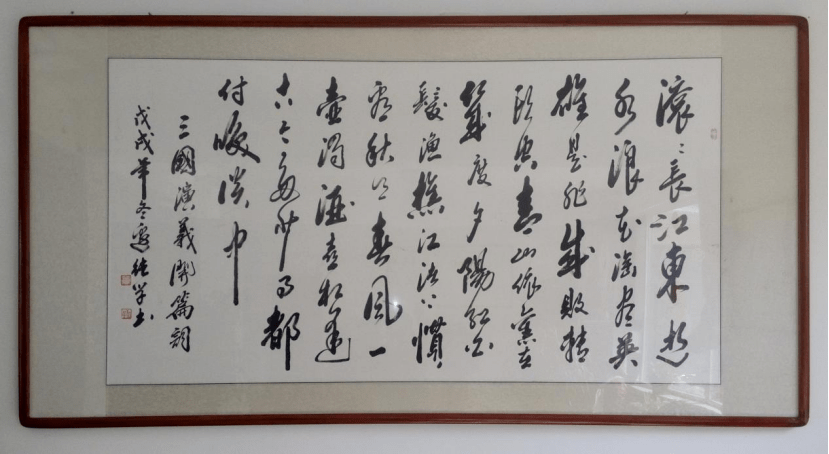 滚滚长江东逝
水浪花淘尽英
雄是非成败转
头空青山依旧在
几度夕阳红白
发渔樵江渚上惯
看秋月春风一
壶浊酒喜相逢
古今多少事都
付笑谈中
三國演義開篇詞
戊戌年冬